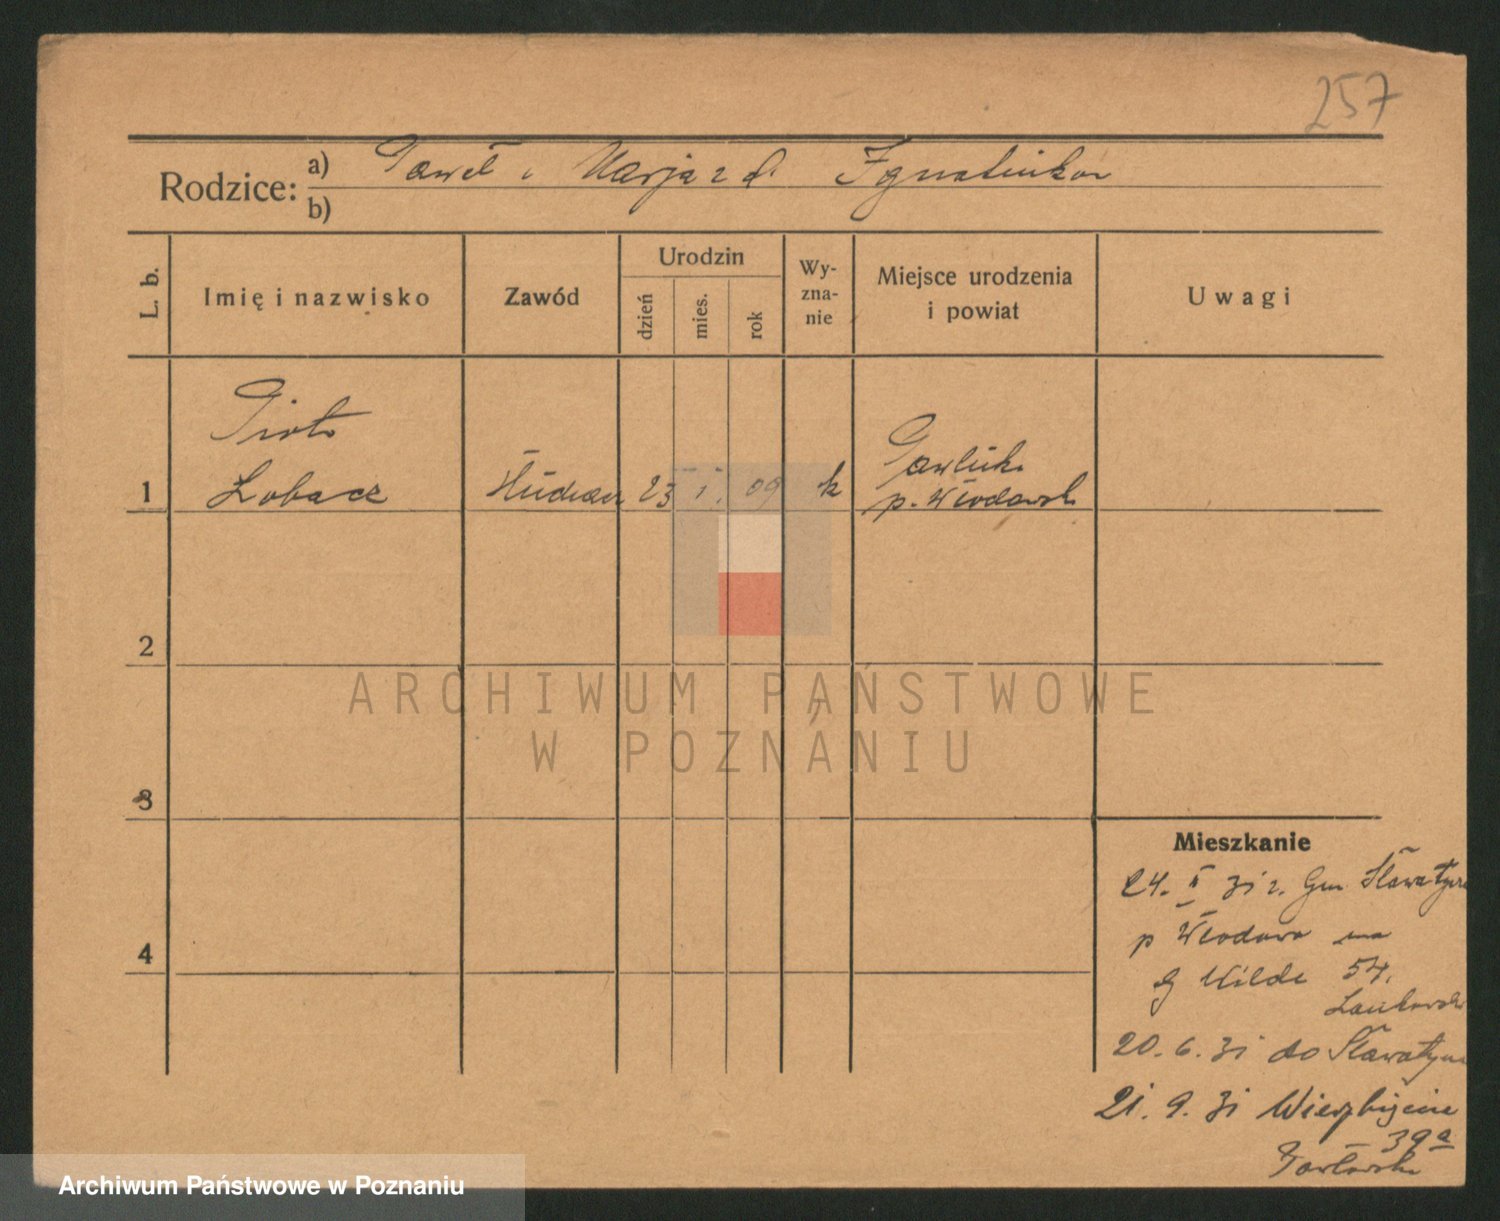 257
Rodzice: a) Paweł i Marja z d. Ignatiuków
b)
L. b.
Imię i nazwisko
Zawód
Urodzin
dzień
mies.
rok
Wy-
zna-
nie
Miejsce urodzenia
i powiat
Uwagi
Piotr
1 Łobacz Student 23 I. 09 k
Pawluki
p. Włodawski
2
3
4
ARCHIWUM PAŃSTWOWE
W POZNANIU
Mieszkanie
24. II 31 z. Gm. Sławatycze
p Włodawa na
G Wilde 54.
20. 6. 31 do Sławatycze
21. 9. 31 Wierzbięcice
39a
Archiwum Państwowe w Poznaniu